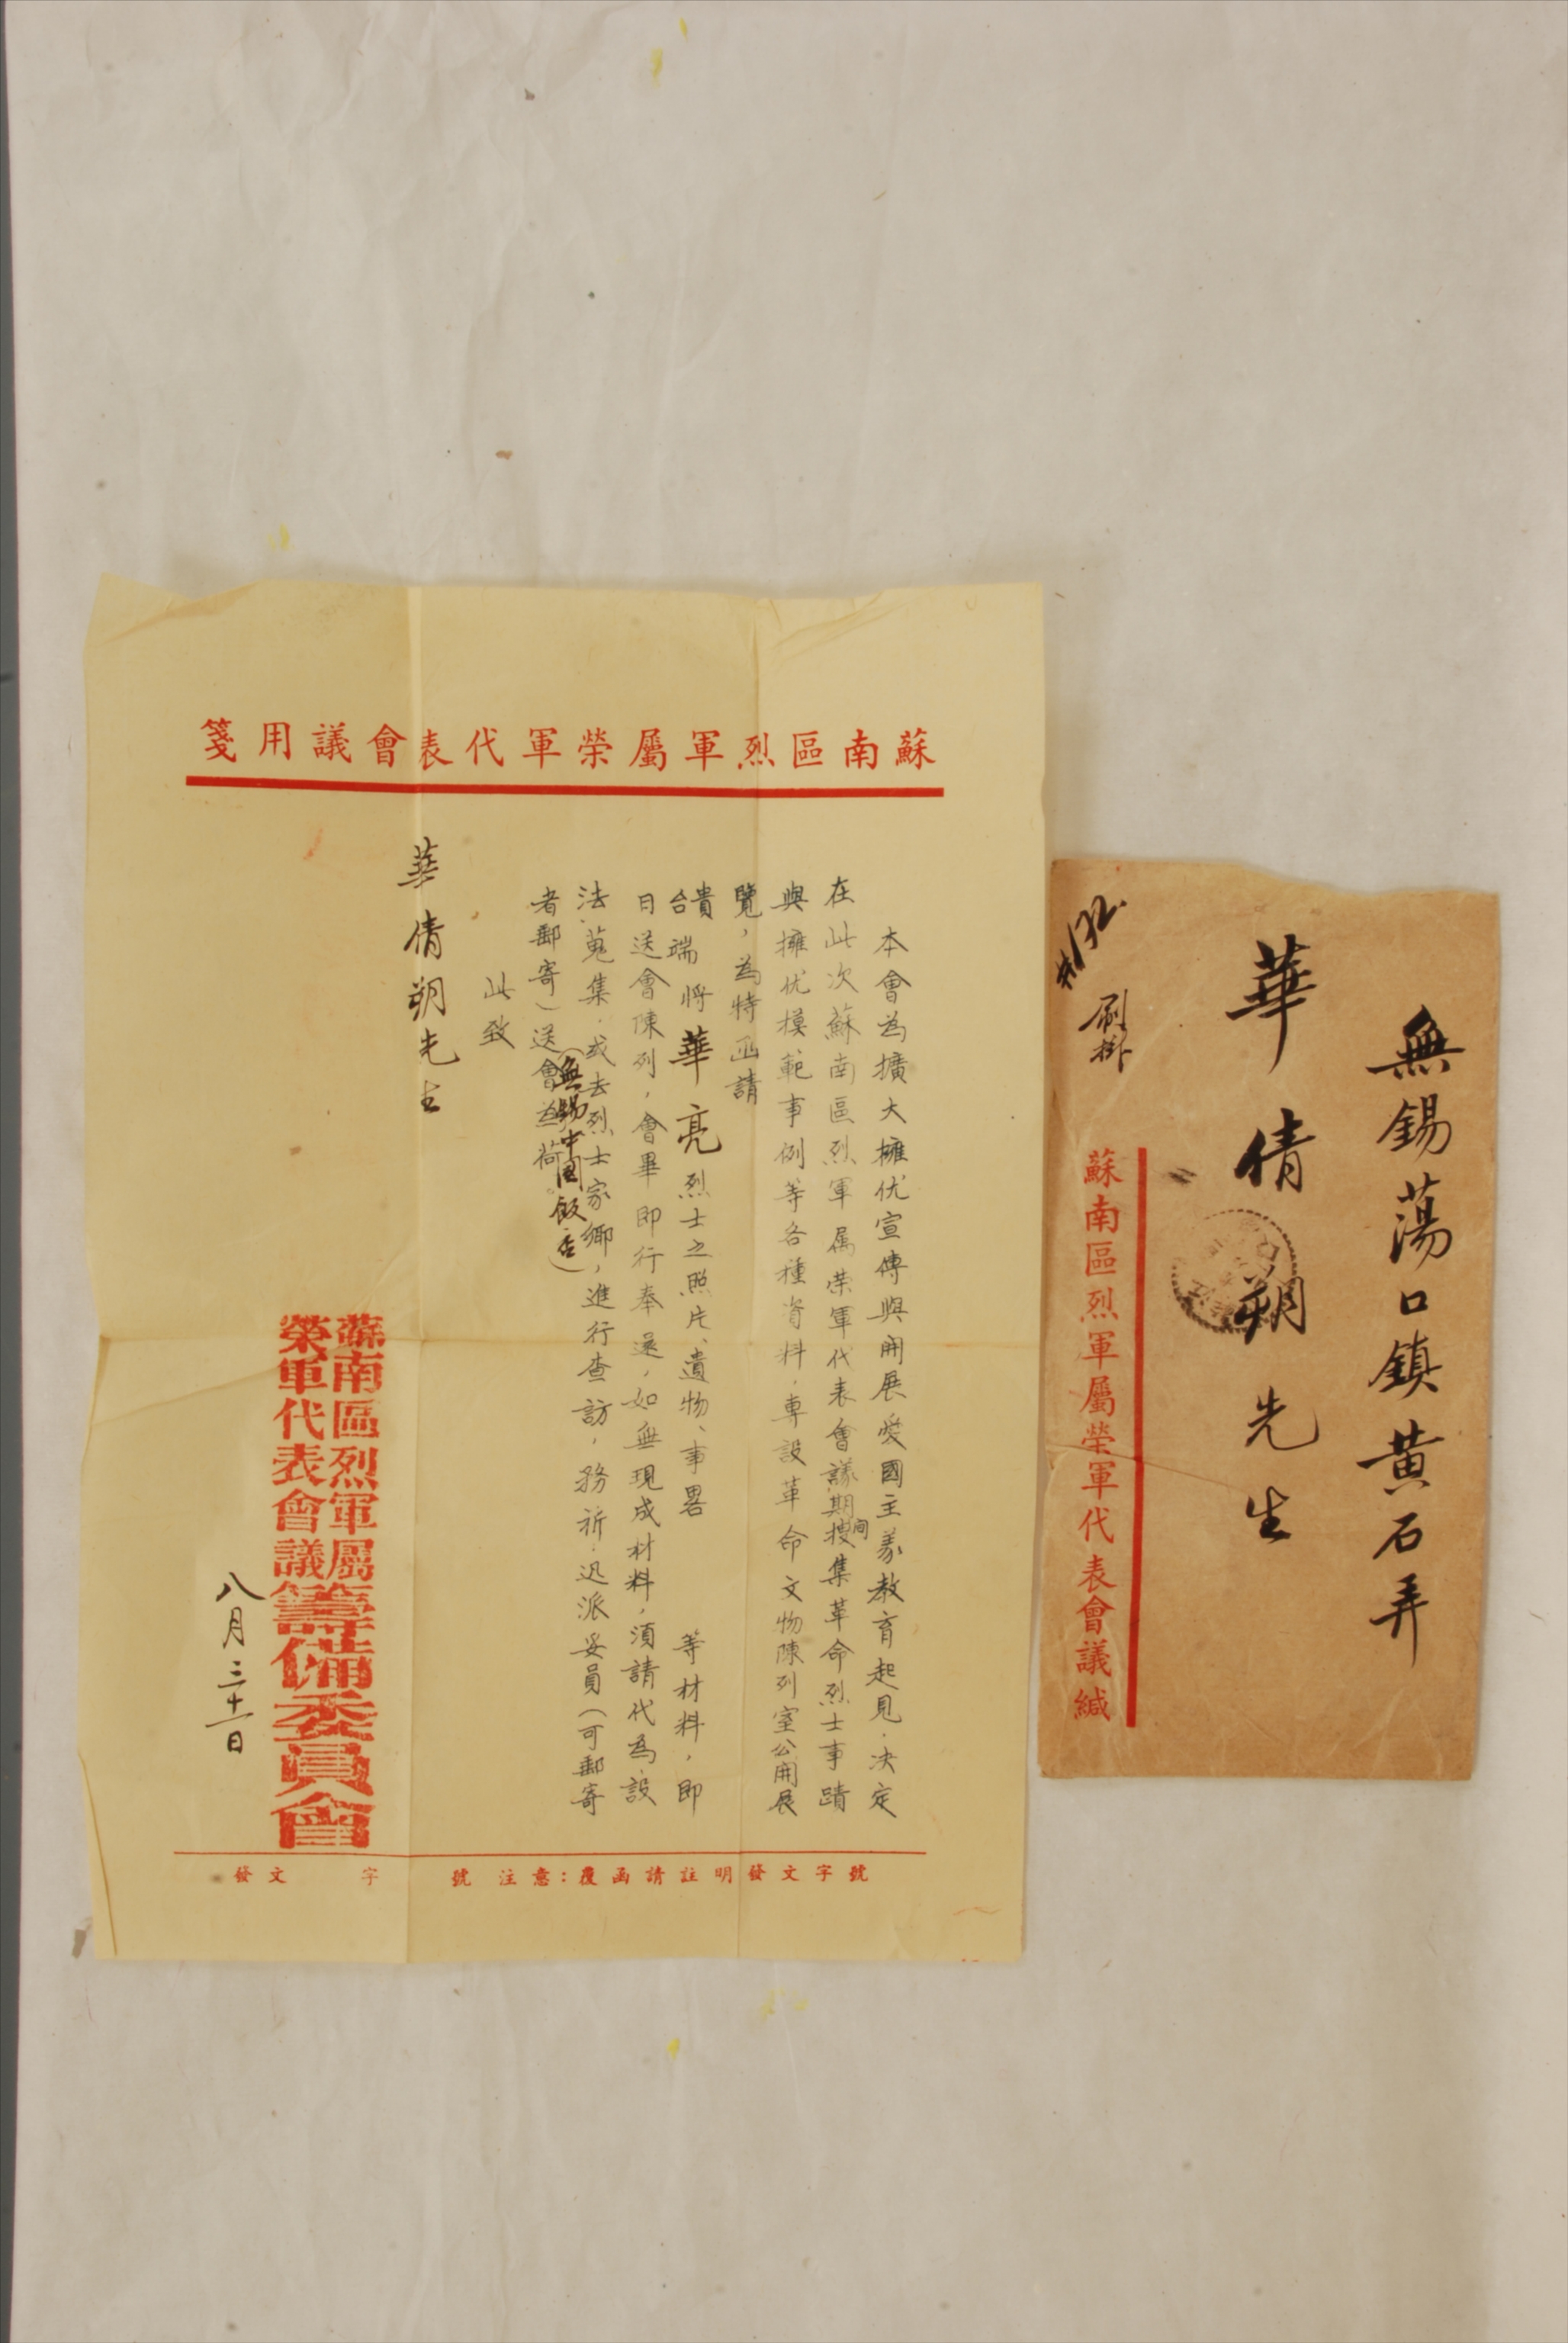 蘇南區烈軍屬榮軍代表會議用箋
本會為擴大擁优宣傳與開展愛國主義教育起見，決定
在此次蘇南區烈軍属荣軍代表會議期间搜集革命烈士事蹟
與擁优模範事例等各種資料，專設革命文物陳列室公開展
覽，為特函請
貴
台端將華亮烈士之照片、遺物、事畧　　等材料，即
日送會陳列，會畢即行奉還，如無現成材料，須請代為設
法蒐集，或去烈士家鄉，進行查訪，務祈迅派妥員（可郵寄
者郵寄）送會為荷。
（無錫中國飯店）
此致
華倩朔先生
蘇南區烈軍屬
榮軍代表會議
籌備委員會
八月三十一日
發文　字　號　注意：覆函請註明發文字號
無錫蕩口鎮黃石弄
華倩朔先生
蘇南區烈軍屬榮軍代表會議緘
132